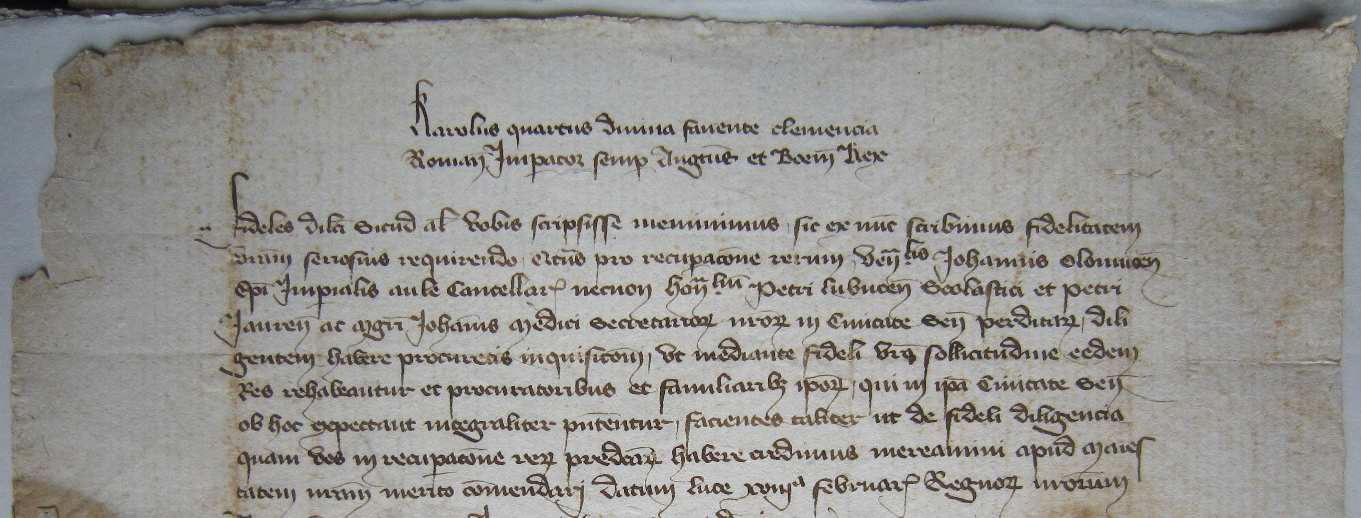 Karolus quartus divina favente clemencia
Roman Impator semp Augus et Boem Rex
Fideles dilci Sicud al vobis scripsisse meminimus sic ex nuc scribimus fidelitatem
vram seriosius requirendo pro recupacone rerum Ven lis Johannis Olomucen
Epi Impialis aule Cancellar necnon Hon lium Petri lubucen Scolastici et petri
Jauren ac mgri Johanis medici Secretarior nror in Civitate Sen perditar dili
gentem habere procuretis inquisicom ut mediante fideli vra sollicitudine eedem
Res rehabeantur et procuratoribus et familiarib ipor qui in ipa Civitate Sen
ob hoc expectant integraliter pntentur facientes taliter ut de fideli diligencia
quam vos in recupacone rer predcar habere credimus mereamini apud maies
tatem nram merito comendari datum luce februar Regnor nrorum